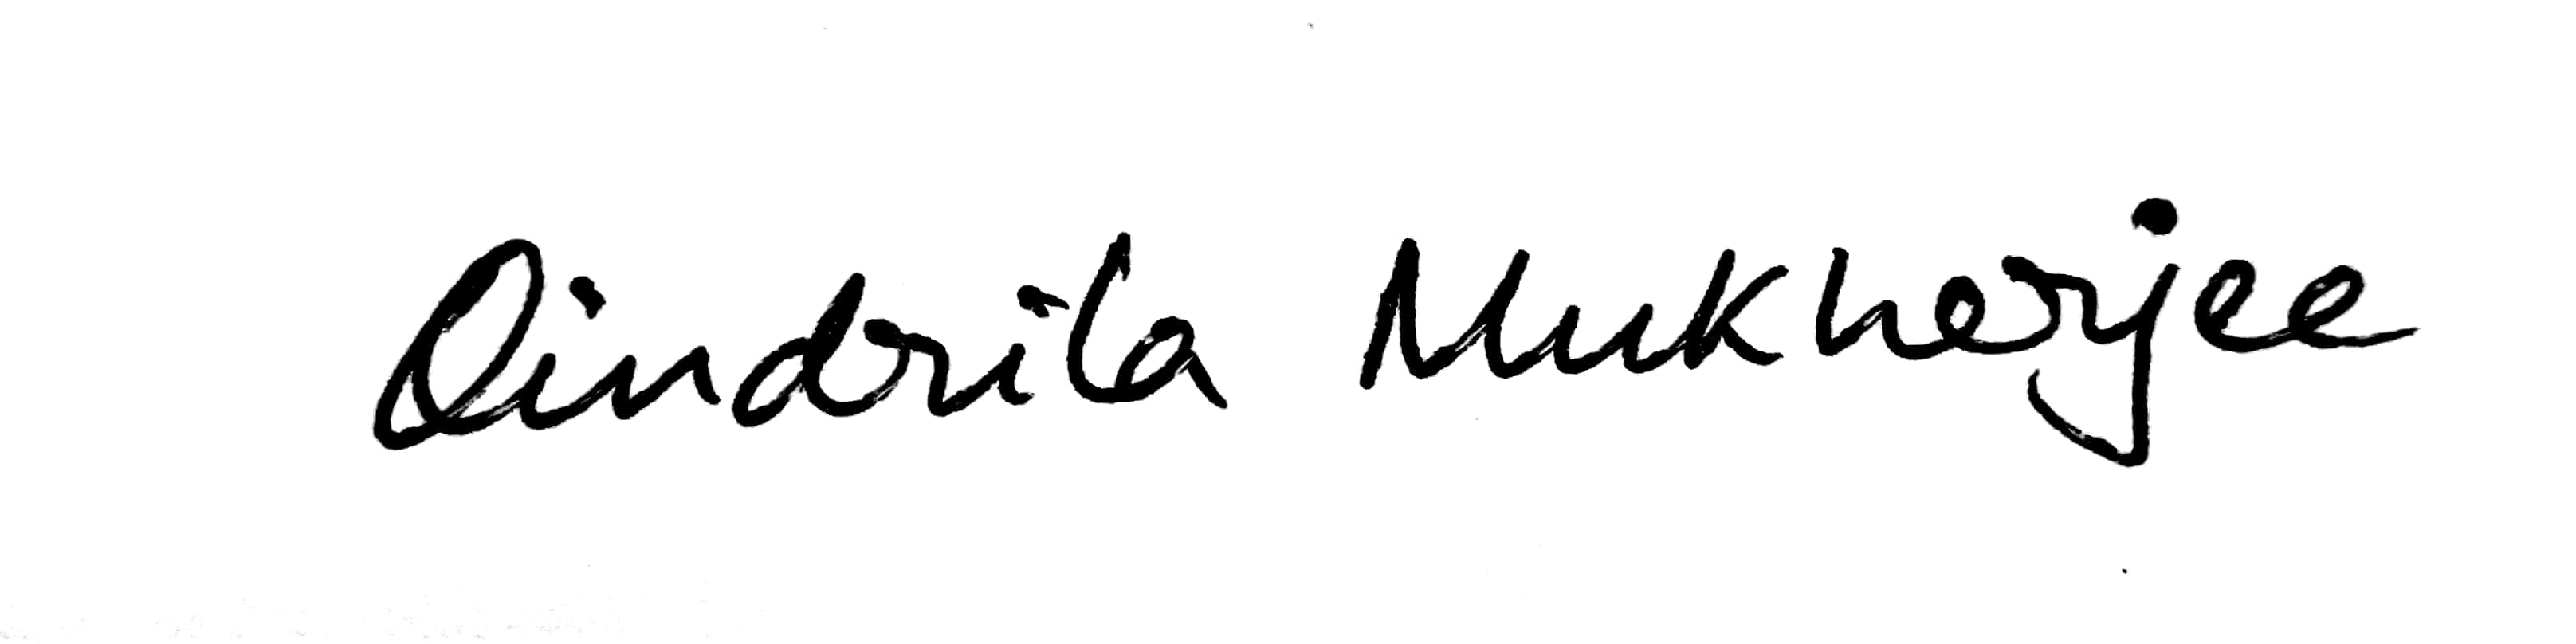 Oindrila Mukherjee